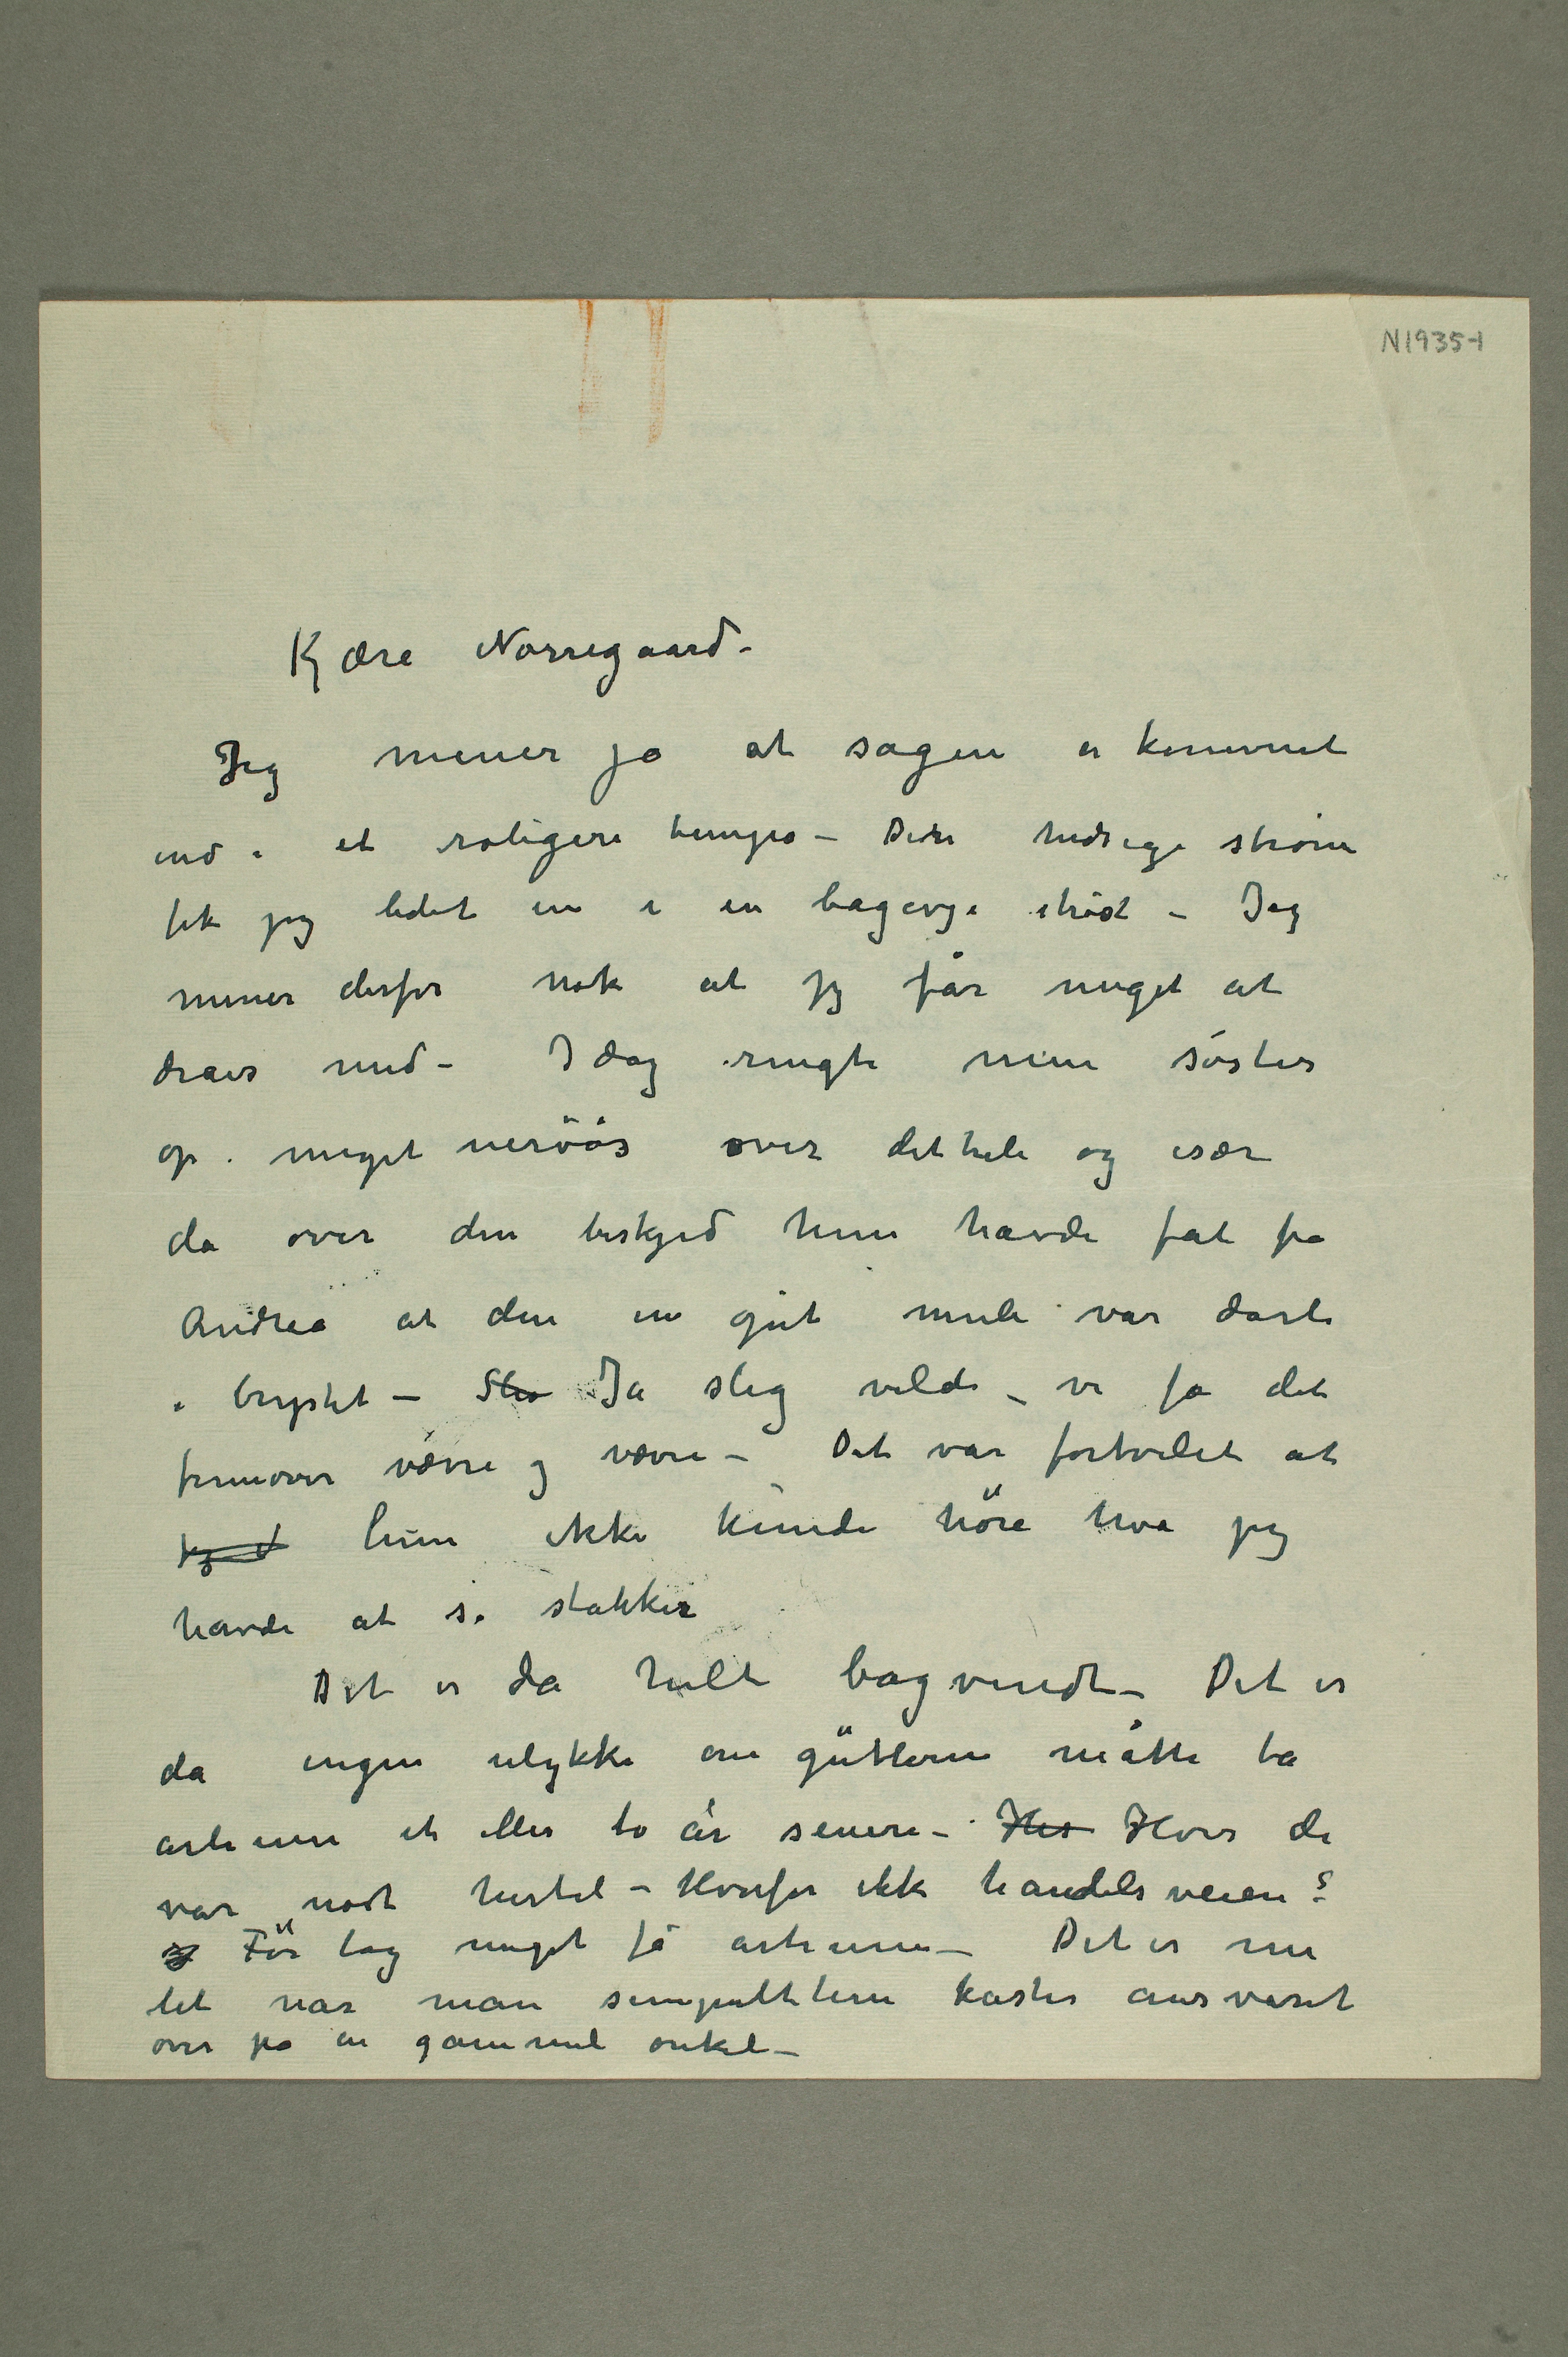 N1935-1
Kjære Nørregaard.
Jeg mener jo at sagen er kommet
ind i et roligere tempo – Den hidsige strøm
fik jeg ledet in i en bagevje
mener derfor nok at jeg får meget at
dra's med – Idag ringte min søster
op. meget nervöøs over det hele og især
da over den beskjed hun havde fåt fra
Andrea at den ene gut muli var dårli
i brystet – Ja slig vilde vi få det
fremover værre og værre – Det var fortvilet at
hun ikke kunde höre hva jeg
havde at si stakker
Det er da helt bagvendt – Det er
da ingen ulykke om gutterne måtte ta
artium et eller to år senere – Hvis de
var nødt hertil – Hvorfor ikke handelsveien?
För tog meget få artium – Det er nu
let når man simpelthen kaster ansvaret
over på en gammel onkel –